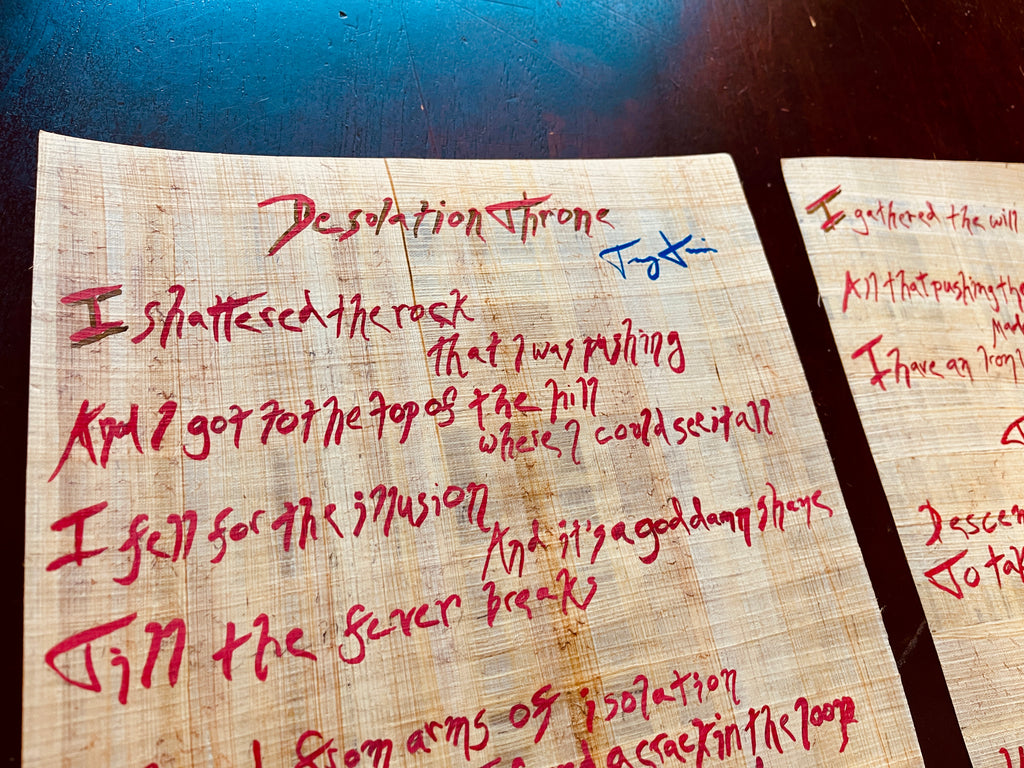 Desolation Throne
I shattered the rock
that I was pushing
And I got to the top of the hill
where I could see it all
I fell for the illusion
And it's a goddamn shame
Till the fever breaks
from arms of isolation
a crack in the loop
I gathered the will
And that pushing the
I have an Iron
To